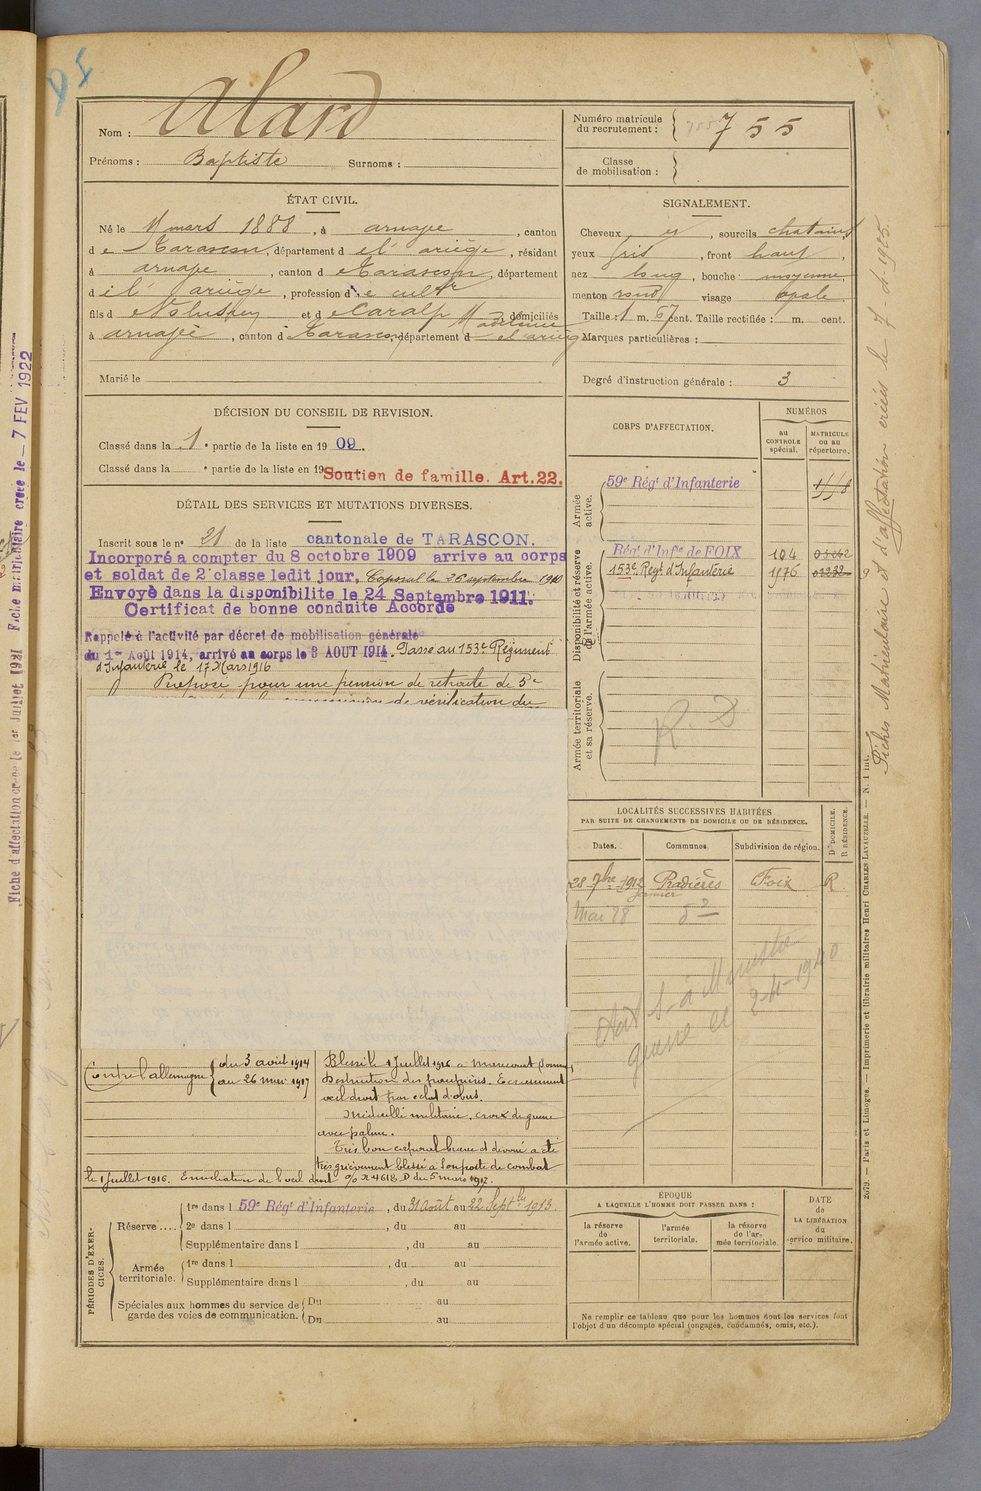 Nom : Alard
Prénoms : Baptiste Surnoms :
Numéro matricule du recrutement : 755
Classe de mobilisation :
ÉTAT CIVIL.
Né le 11 mars 1888, à arnave, canton
de Tarascon, département d el' ariège, résidant
à arnave, canton d e Tarascon, département
d el' ariège, profession d e cultr
fils d et d e Caralp Madeleine domiciliés
à arnave, canton d e Tarascon, département d el' ariège
Marié le
SIGNALEMENT.
Cheveux , sourcils chatains
yeux gris, front haut,
nez long, bouche moyenne
menton rond visage ovale
Taille : 1 m. 67 cent. Taille rectifiée : m. cent.
Marques particulières :
Degré d'instruction générale : 3
DÉCISION DU CONSEIL DE REVISION.
Classé dans la 1e partie de la liste en 1909.
Classé dans la e partie de la liste en 19
Soutien de famille. Art.22.
DÉTAIL DES SERVICES ET MUTATIONS DIVERSES.
Inscrit sous le no 21 de la liste cantonale de TARASCON.
Incorporé a compter du 8 octobre 1909 arrive au corps
et soldat de 2e classe ledit jour. Caporal le 26 septembre 1910
Envoyé dans la disponibilite le 24 Septembre 1911.
Certificat de bonne conduite Accordé
Rappelé à l'activité par décret de mobilisation générale
du 1er Août 1914, arrivé au corps le 3 AOUT 1914. Passé au 153e Régiment
d'Infanterie le 17 Mars 1916
Proposé pour une pension de retraite de 5e
de vérification du
Contre l'allemagne du 3 août 1914
au 26 mai 1917
Blessé le 1 Juillet 1916 à (Somme)
Destruction des paupières. Ecrasement
oeil droit par eclat d'obus.
Médaille militaire. croix de guerre
avec palme.
Très bon caporal brave et dévoué a été
très grièvement blessé à son poste de combat
le 1 Juillet 1916. Enucléation de l'oeil droit O/ No 4618 D du 5 mars 1917.
CORPS D'AFFECTATION.
NUMÉROS
au CONTROLE spécial.
MATRICULE ou au répertoire.
Armée active.
59e Régt d'Infanterie
Disponibilité et réserve de l'armée active.
Régt d'Infie de FOIX 104
153e Regt d'Infanterie 1176
Armée territoriale et sa réserve.
R. D
LOCALITÉS SUCCESSIVES HABITÉES
PAR SUITE DE CHANGEMENTS DE DOMICILE OU DE RÉSIDENCE.
Dates. Communes. Subdivision de région. D DOMICILE. R RÉSIDENCE.
28 7bre 1912 Pradières Foix R
Mai 28
guerre le 2-4-1940
PÉRIODES D'EXERCICES.
Réserve .... 1re dans l 59e Régt d'Infanterie, du 31 Août au 22 Septbre 1913.
2e dans l , du au
Supplémentaire dans l , du au
Armée territoriale. 1re dans l , du au
Supplémentaire dans l , du au
Spéciales aux hommes du service de garde des voies de communication. Du au
Du au
ÉPOQUE
A LAQUELLE L'HOMME DOIT PASSER DANS :
la réserve de l'armée active.
l'armée territoriale.
la réserve de l'armée territoriale.
DATE de LA LIBÉRATION du service militaire.
Ne remplir ce tableau que pour les hommes dont les services font
l'objet d'un décompte spécial (engagés, condamnés, omis, etc.).
Fiches Matriculaire et d'affectation créées le 7-8-1925.
2679. — Paris et Limoges. — Imprimerie et librairie militaires Henri CHARLES-LAVAUZELLE. — N. 1 int.
Fiche d'affectation créée le 1er Juillet 1921 Fiche matriculaire créée le - 7 FEV 1922